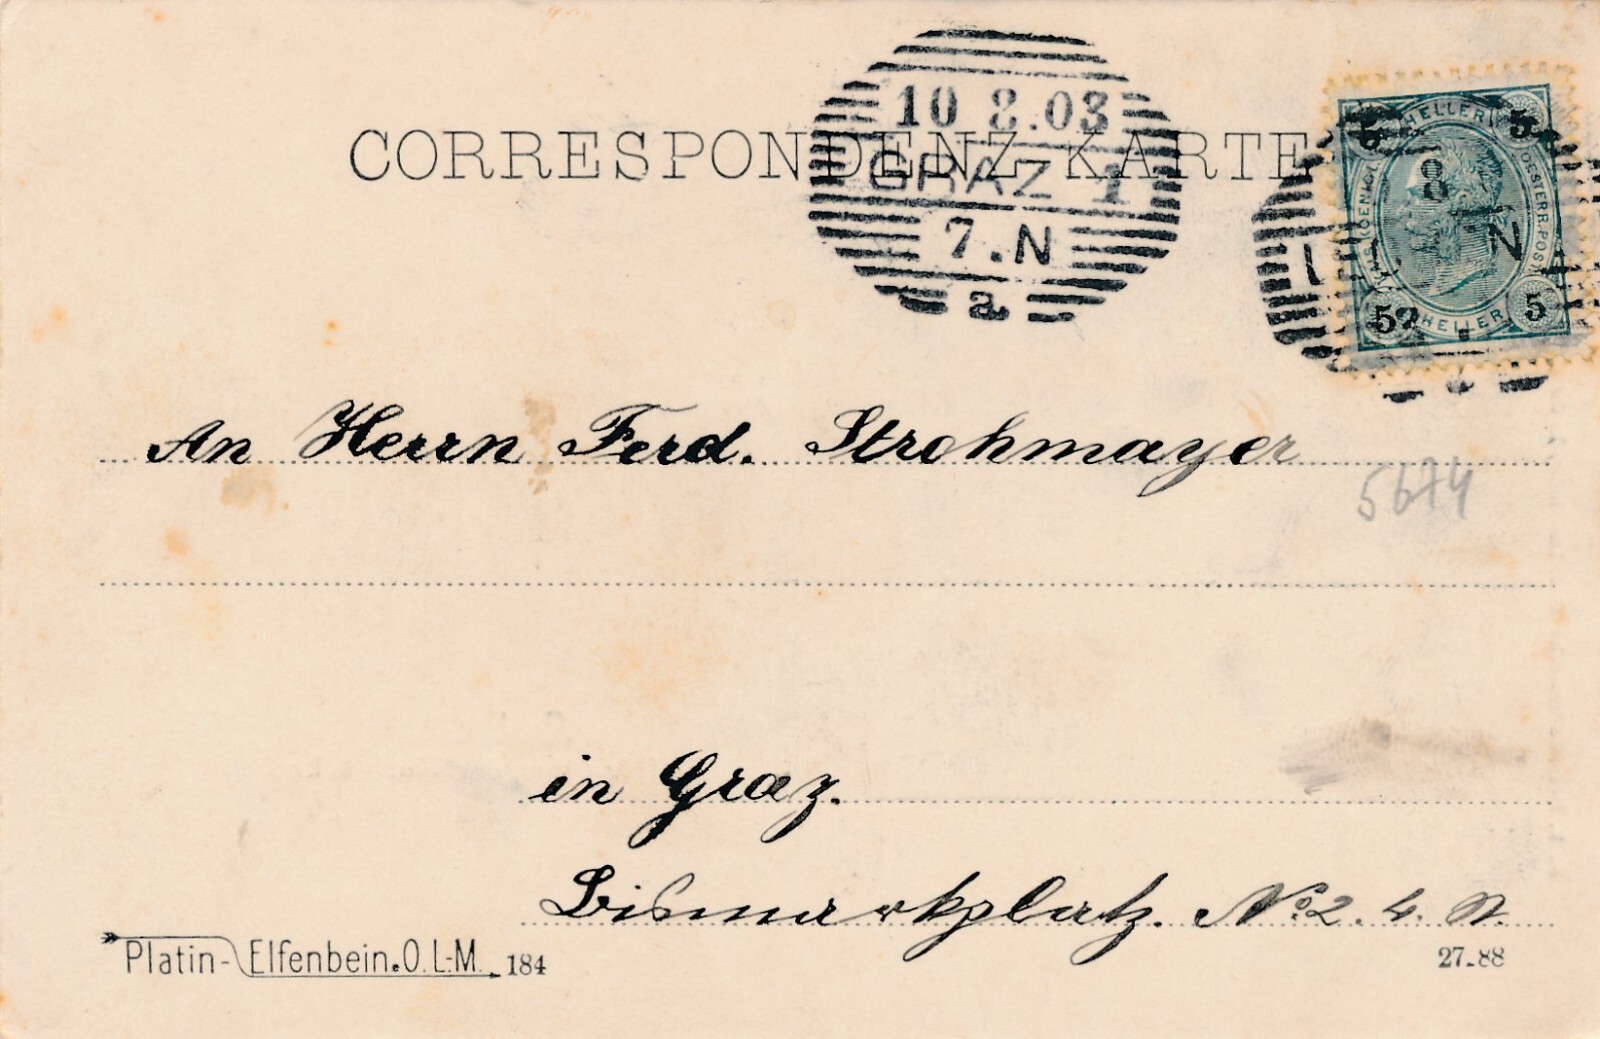 CORRESPONDENZ-KARTE
10 8.03
GRAZ 1
7.N
a
HELLER
5 5
KAIS. KOENIGL. OESTERR. POST
8
N
5 5
HELLER
An Herrn Ferd. Strohmayer
5674
in Graz.
Bismarkplatz. No. 2. 4. St.
Platin-Elfenbein.O.L-M. 184
27-88